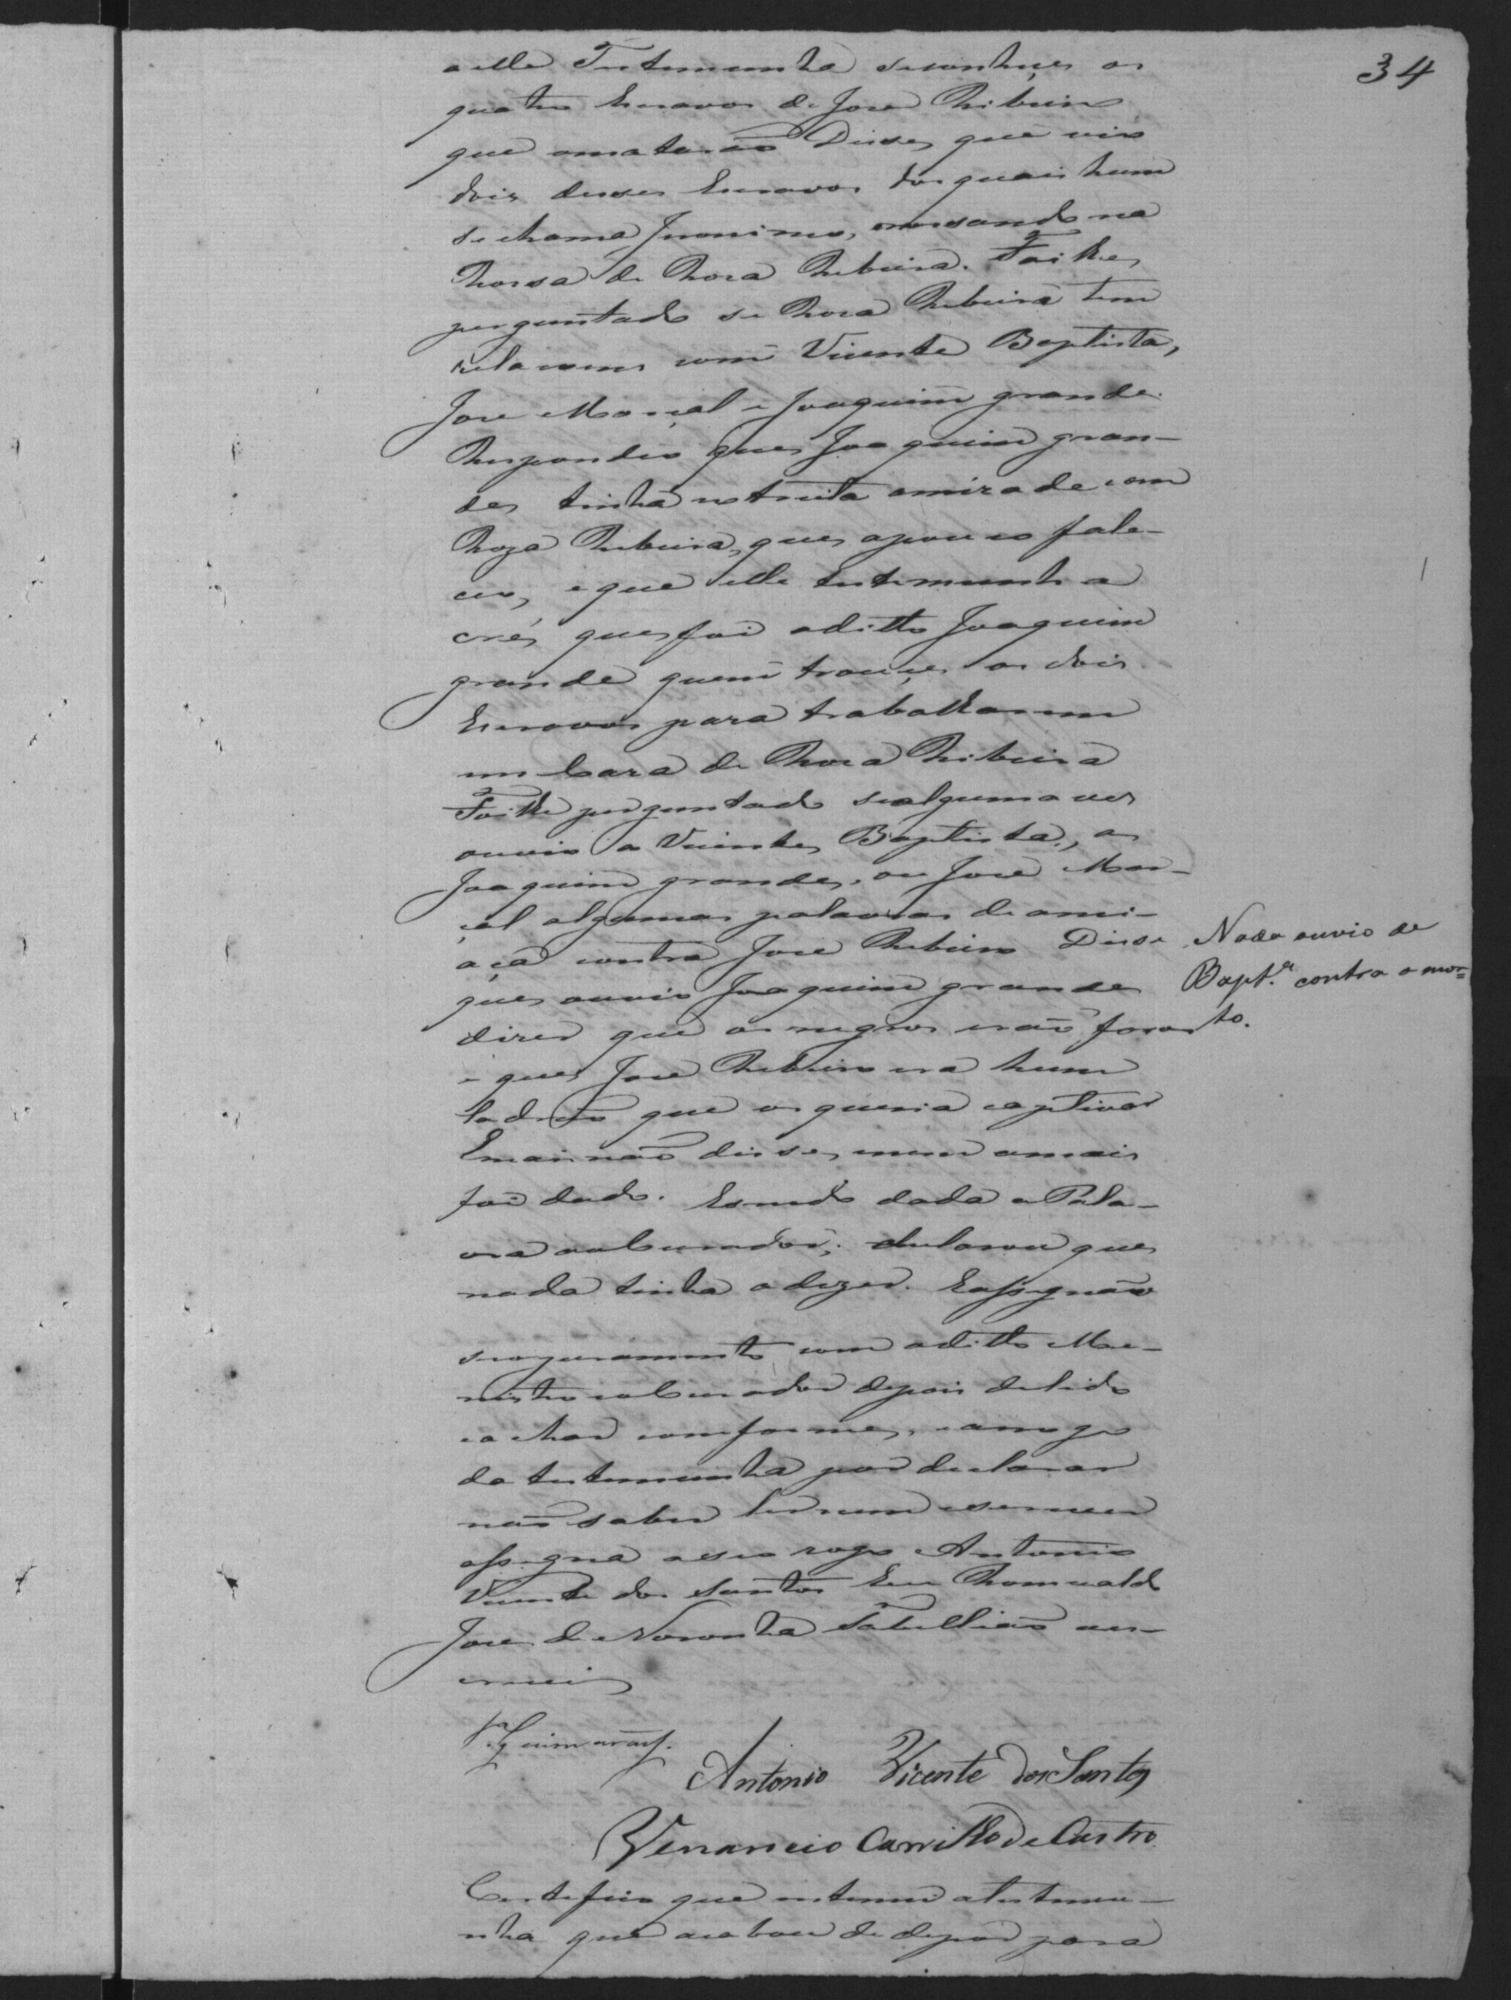 34
a elle Testemunha se conheçe os
quatro Escravos de Jose Ribeiro
que o matarão Disse, que vio
dois desses Escravos dos quais hum
se chama Jeronimo, na
Rossa de Rosa Ribeira. Foi lhe,
perguntado se Rosa Ribeira tem
relacoens com Vicente Baptista,
Jose Marçal e Joaquim grande.
Respondeo que, Joaquim gran-
de, tinha estreita amizade com
Roza Ribeira, que, a pouco fale-
ceo, e que elle testemunha
crê, que, foi o ditto Joaquim
grande quem trouçe, os dois
Escravos para trabalharem
em Casa de Rosa Ribeira
Foi lhe perguntado se alguma ves
ouvio a Vicente, Baptista, a
Joaquim grande, ou Jose Mar-
çal algumas palavras de ami-
aça contra Jose Ribeiro Disse
que, ouvio Joaquim grande
dizer que os negros erão forros
e que, Jose Ribeiro era hum
ladrão que os queria captivar
E mais não disse, nem a mais
foi dado. E sendo dada a Pala-
vra ao Curador, declarou que,
nada tinha a dizer. E assignão
seo juramento com o ditto Me-
retissimo Curador depois de lido
e achar conforme, e a rogo
da testemunha por declarar
não saber ler nem escrever
assigna a seo rogo Antonio
Vicente dos Santos Eu Romualdo
Jose de Noronha Tabellião o es-
crevi
Guimarães.
Antonio Vicente dos Santos
Venancio Carrilho de Castro
Certefico que intimei a testemu-
nha que acabou de depor para
Nada ouvio de
Bapt.ª contra o mor=
to.